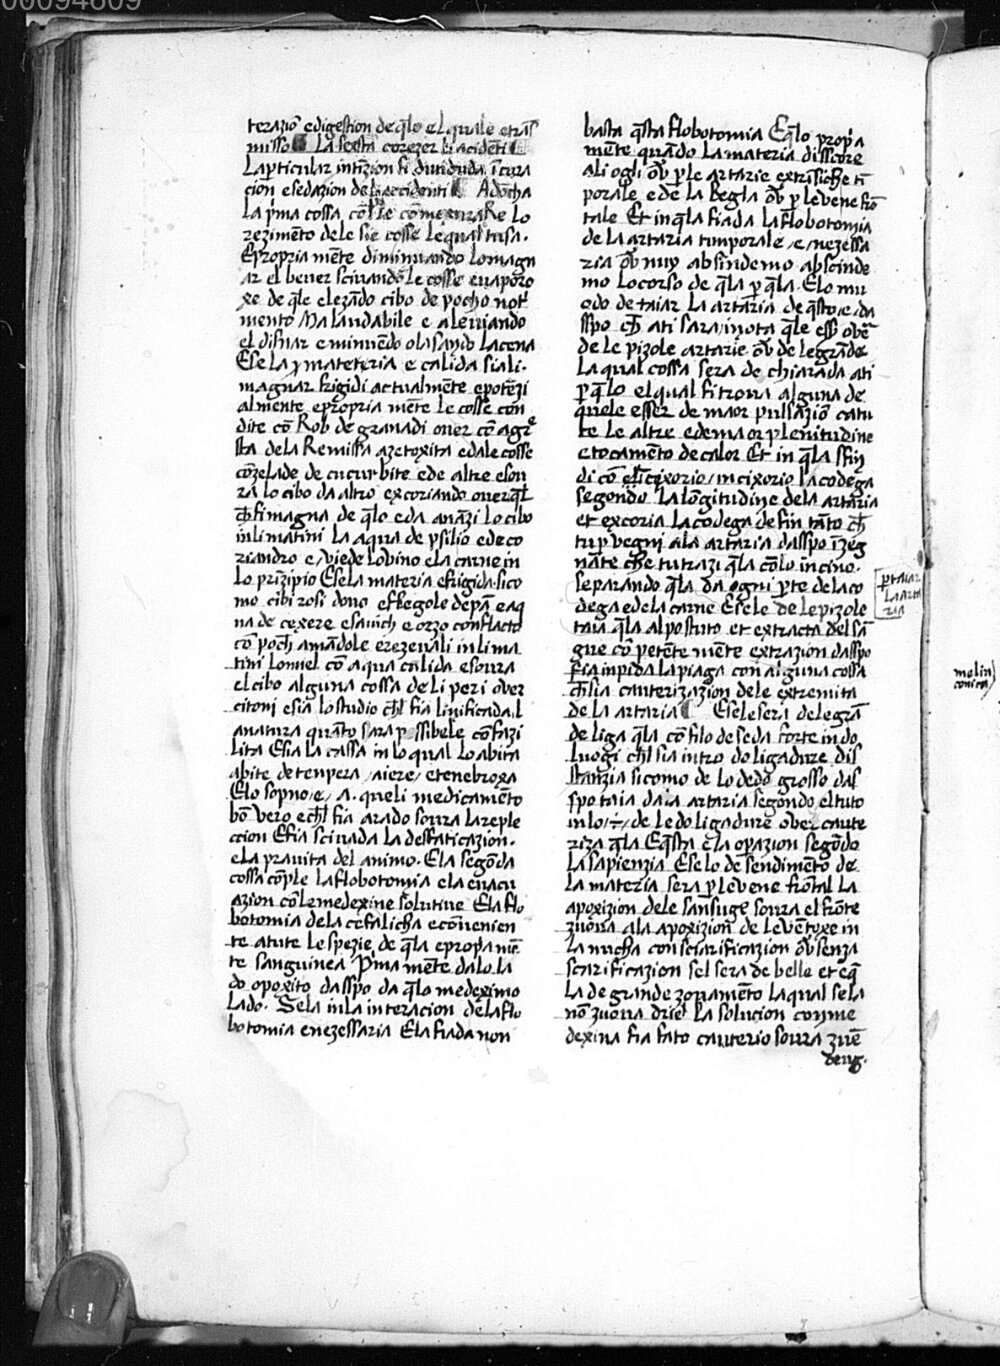 00094809
terazio᷉ e digestion de q̃lo el quale e tras
misso La sesta corezer li acidenti
La p̱ticular inte᷉zion si diuiduda i᷉ cura
cion e sedazion de li accidenti Adoncha
La p᷉ma cossa co᷉ple come᷉ xura Re lo
rezime᷉to dele sie cosse le qual tusa.
E propria me᷉te diminuando lo magn
ar el beuer sciuando le cosse euaporo
xe de q̃le eleza᷉do cibo de pocho not᷉
mento Ma laudabile e aleuiando
el disnar e minue᷉do o lasando la cena
E se la p᷉ materia e calida siali.
magnar frigidi actualme᷉te e pote᷉zi
almente e propria me᷉te le cosse con
dite co᷉ Rob de granadi ouer co᷉ agre
sta de la Remissa azetoxita e dale cosse
co᷉zelade de cucurbite e de altre e sou
ra lo cibo da altro excoriando ouer q̃l
ch᷉ si magna de q̃lo e da ana᷉zi lo cibo
in li matini la aqua de psilio e de co
riandro e uiede lo uino e la carne in
lo pri᷉zipio E se la materia e frigida sico
mo cibi rosi dono e fregole de pa᷉ e aq
ua de cexere e sauich e orzo con facto
co᷉ poch᷉ ama᷉dole e rezeuali in li ma
tini lo miel co᷉ aqua calida e soura
el cibo alguna cossa de li peri ouer
citoni e sia lo studio ch᷉l sia linificada l
a natura qua᷉to sara possibele co᷉ fazi
lita E sia la cassa in lo qual lo abita
abite de tenpera / aiere / e tenebroxa
E lo sopno / e / A. queli medicame᷉to
bo᷉ vero e ch᷉l sia arado soura la reple
ccion E sia sciuada la desfaticazion.
e la prauita del animo. E la sego᷉da
cossa co᷉ple la flobotomia e la euacu
azion co᷉ le medexine solutiue E la flo
botomia de la cefalicha e co᷉uenien
te a tute le spezie de q̃la e propa me᷉
te sanguinea P᷉ma mente da lo la
do oposito dasspo da q̃lo medeximo
lado. Se la in la interacion de la flo
botomia e nezessaria E la fiada non
basta q̃sta flobotomia E q̃lo propia
me᷉te qua᷉do la materia disscore
ali ogli ou᷉ p̱ le artarie extri᷉siche ti᷉
porale e de la begla ou᷉ p̱ le uene fro᷉
tale Et in q̃la fiada la flobotomia
de la artaria timporale / e / nezessa
ria ou᷉ nuy absindemo abscinde
mo lo corso de q̃la p̱ q̃la. E lo mu
odo de taiar la artaria de q̃sto / e / da
sspo ch᷉ a ti sara / inota q̃le ess᷉ ouer
de le pizole artarie ou᷉ de le grande
La qual cossa sera dechiarada a ti
p̱ q̃lo el qual si troua alguna de
quele esser de maor pulsazio᷉ ca tu
te le altre e de maor plenitudine
e tocame᷉to de calor Et in q̃la sfin
di co᷉ el scixorio / incixorio la codega
segondo la longitudine dela artaria
et excoria la codega de fin ta᷉to ch᷉
tu p̱uegni ala artaria dasspo i᷉zeg
nate che tu trazi q̃la co᷉ lo incino.
separando q̃la da ogni p̱te dela co
dega e dela carne E se le de le pizole
taia q̃la al postuto et extracta del sa᷉
gue co᷉petente me᷉te extrazion dasspo
sia inpida la piaga con alguna cossa
ch᷉ sia cauterizazion dele extremita
de la artaria E se le sera de le gra᷉
de liga q̃la co᷉ filo de seda forte in do
luogi ch᷉l sia intro do ligadure dis
stanzia sicomo de lo dedo grosso das
spo taia da ia artaria segondo el tuto
in lo / ÷ / de le do ligadure ouer caute
riza q̃la E q̃sta e la opazion sego᷉do
la sapienzia E se lo desendime᷉to de
la materia sera p̱ le uene fro᷉tal la
apoxizion dele sansuge soura el fro᷉te
zuoua ala apoxizion de le ue᷉toxe in
la nucha con sciarificazion ou᷉ senza
scarificazion sel sera debelle et eq̃
la de grande zouame᷉to la qual se la
no᷉ zuoua drie᷉ la solucion con me
dexina fia fato cauterio soura zue᷉
deng.
p̱ taiar
La arta
ria
melin
conica